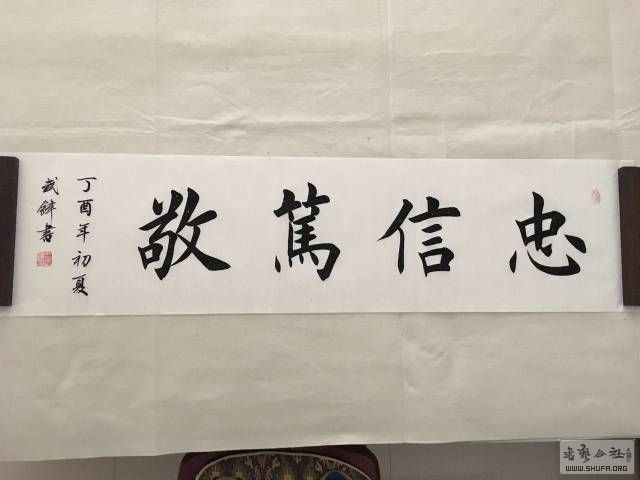 忠信篤敬
丁酉年初夏
武
書
WWW.SHUFA.ORG